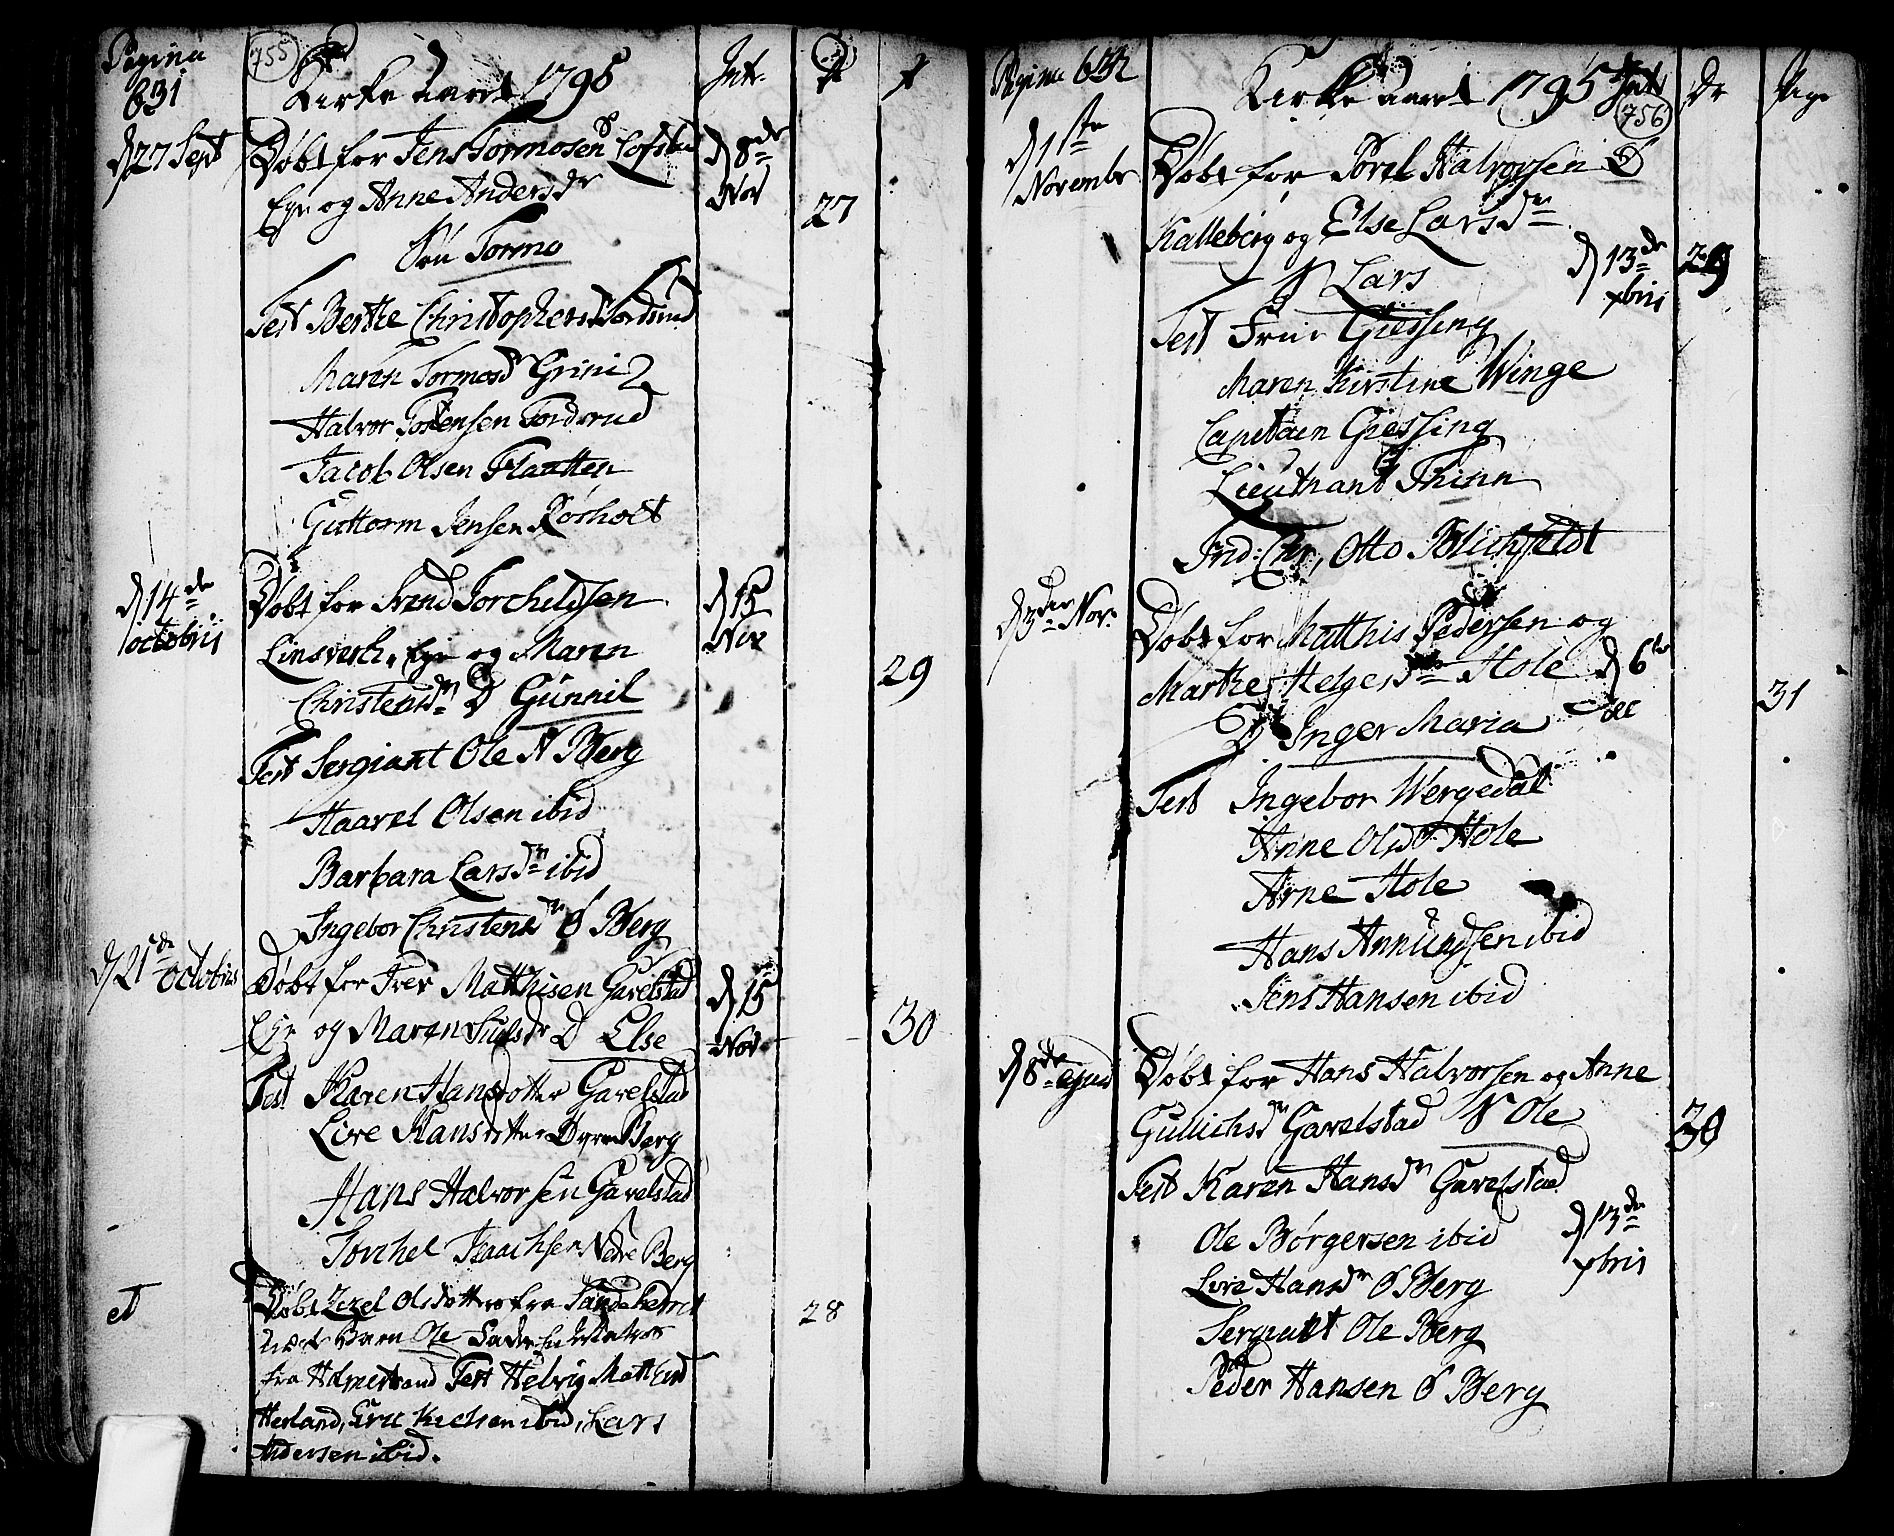 Pagina 631
755
Kirke aaret 1795
Int.
d 27 Sept
Døbt for Jens Tormosen Lofstu
Eye og Anne Andersdr
d 8de Nov
27
Søn Tormo
Test Berthe Christophersd Fordsrud
Maren Tormosd Grini
Halvor Torstensen Fordsrud
Jacob Olsen Flaatten
Guttorm Jensen Rørholt
d 14de octobrii
Døbt for Svend Torchildsen
Linsverk, Eye og Maren
Christensdn D Gunnil
d 15 Nov
29
Test Sergiant Ole N Berg
Haavel Olsen ibid
Barbara Larsdn ibid
Ingebor Christensdn Ø Berg
d 21de Octobris
Døbt for Iver Matthisen Gavelstad
Eye og Maren D Else
d 15 Nov
30
Test Karen Hansdotter Gavelstad
Live Hansdotter Øvre Berg
Hans Halvorsen Gavelstad
Torchel Isaachsen Nedre Berg
et
Døbt Olsdotter fra Sandeherret
uægte Barn Ole Fader
28
fra Holmestrand Test Helvig Matthisd
Herland, ibid, Lars
Andersen ibid.
Pagina 632
Kirke aaret 1795
Int
756
Dr
Pige
d 1ste Novembr
Døbt for Povel Halvorsen
Kalleberg og Else Larsdn
S Lars
d 13de xbrii
29
Test Frue Giessing
Maren Kirstine Winge
Capitaen Giessing
Lieutnant Thinn
Ind: Chr, Otto Blichfeldt
d 3die Nov.
Døbt for Matthis Pedersen og
Marthe Helgesdn Hole
d 6te dec
D Inger Maria
31
Test Ingebor Wergedal
Anne Olsd Hole
Arne Hole
Hans Amundsen ibid
Jens Hansen ibid
d 8de ejusd
Døbt for Hans Halvorsen og Anne
Gulichsdn Gavelstad S Ole
30
Test Karen Hansdn Gavelstad
Ole Børgersen ibid
d 13de xbris
Live Hansdn Ø Berg
Sergiant Ole Berg
Peder Hansen Ø Berg